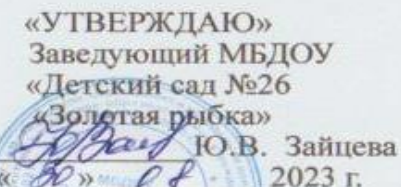 «УТВЕРЖДАЮ»
Заведующий МБДОУ
«Детский сад №26
«Золотая рыбка»
Ю.В. Зайцева
«30» 08 2023 г.